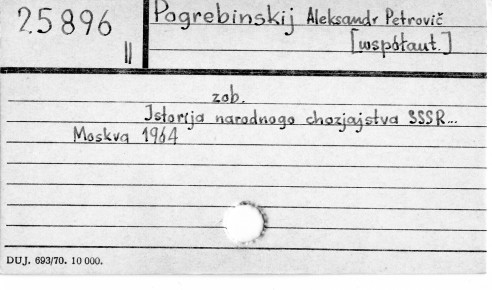 25896
II
Pogrebinskij Aleksandr Petrovič
[współaut.]
zob.
Istorija narodnogo chozjajstva SSSR...
Moskva 1964
DUJ. 693/70. 10 000.